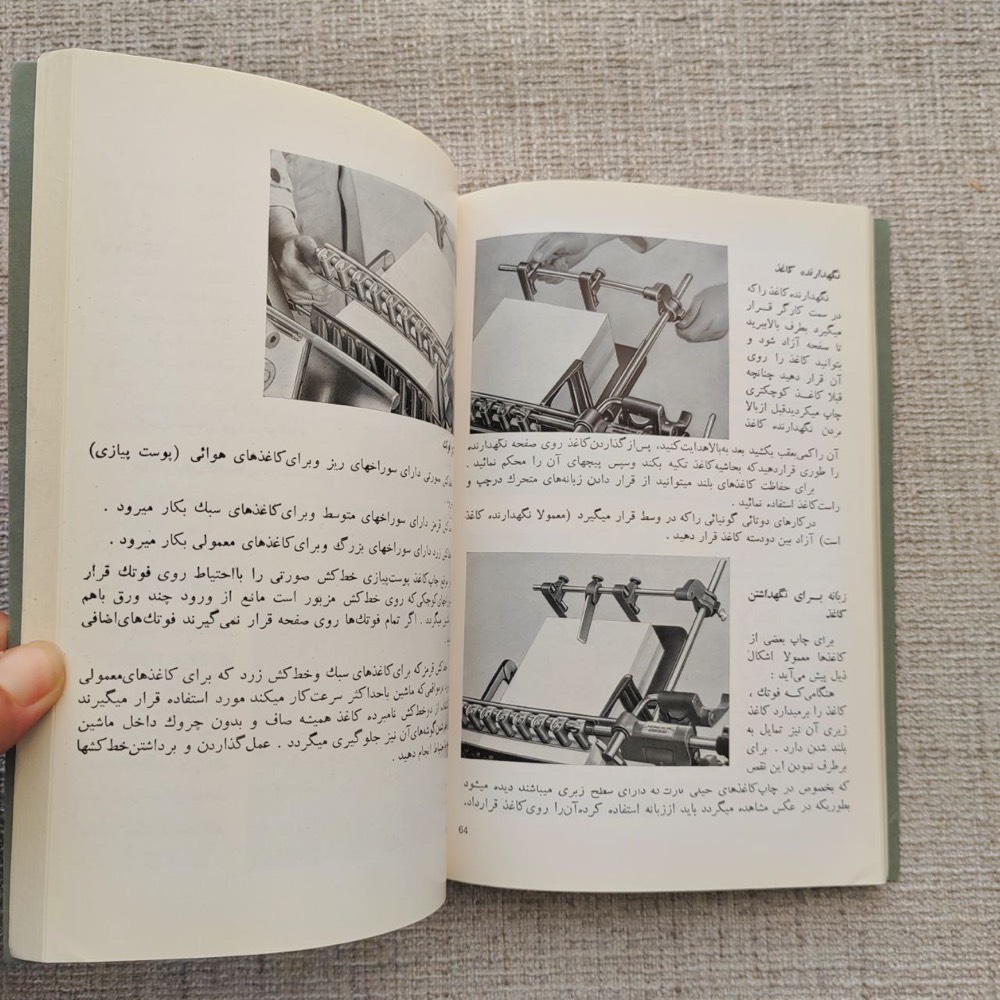 نگهدارنده کاغذ
نگهدارنده کاغذ را که
در سمت کارگر قرار
میگیرد بطرف بالا ببرید
تا سفحه آزاد شود و
بتوانید کاغذ را روی
آن قرار دهید چنانچه
قبلا کاغذ کوچکتری
چاپ میکردید قبل از بالا
بردن نگهدارنده کاغذ
آن را کمی بعقب بکشید بعد به بالا هدایت کنید، پس از گذاردن کاغذ روی صفحه نگهدارنده
را طوری قرار دهید که بحاشیه کاغذ تکیه بکند وسپس پیچهای آن را محکم نمائید .
برای حفاظت کاغذهای بلند میتوانید از قرار دادن زبانه‌های متحرك درچپ و
راست کاغذ استفاده نمائید .
در کارهای دوتائی گونیائی را که در وسط قرار میگیرد (معمولا نگهدارنده کاغذ
است) آزاد بین دودسته کاغذ قرار دهید .
زبانه برای نگهداشتن
کاغذ
برای چاپ بعضی از
کاغذها معمولا اشکال
ذیل پیش می‌آید :
هنگامی که فوتك ،
کاغذ را برمیدارد کاغذ
زیری آن نیز تمایل به
بلند شدن دارد . برای
برطرف نمودن این نقص
که بخصوص در چاپ کاغذهای خیلی نازك که دارای سطح زبری میباشند دیده میشود
بطوریکه در عکس مشاهده میگردد باید از زبانه استفاده کرده آن را روی کاغذ قرارداد.
64
صورتی دارای سوراخهای ریز وبرای کاغذهای هوائی (پوست پیازی)
قرمز دارای سوراخهای متوسط وبرای کاغذهای سبك بکار میرود .
زرد دارای سوراخهای بزرگ وبرای کاغذهای معمولی بکار میرود .
چاپ کاغذ پوست‌پیازی خط‌کش صورتی را بااحتیاط روی فوتك قرار
کوچکی که روی خط‌کش مزبور است مانع از ورود چند ورق باهم
میگردد . اگر تمام فوتك‌ها روی صفحه قرار نمی‌گیرند فوتك‌های اضافی
قرمز که برای کاغذهای سبك وخط‌کش زرد که برای کاغذهای معمولی
که ماشین باحداکثر سرعت کار میکند مورد استفاده قرار میگیرند
از دوخط‌کش نامبرده کاغذ همیشه صاف و بدون چروك داخل ماشین
گوشه‌های آن نیز جلوگیری میگردد . عمل گذاردن و برداشتن خط‌کشها
احتیاط انجام دهید .